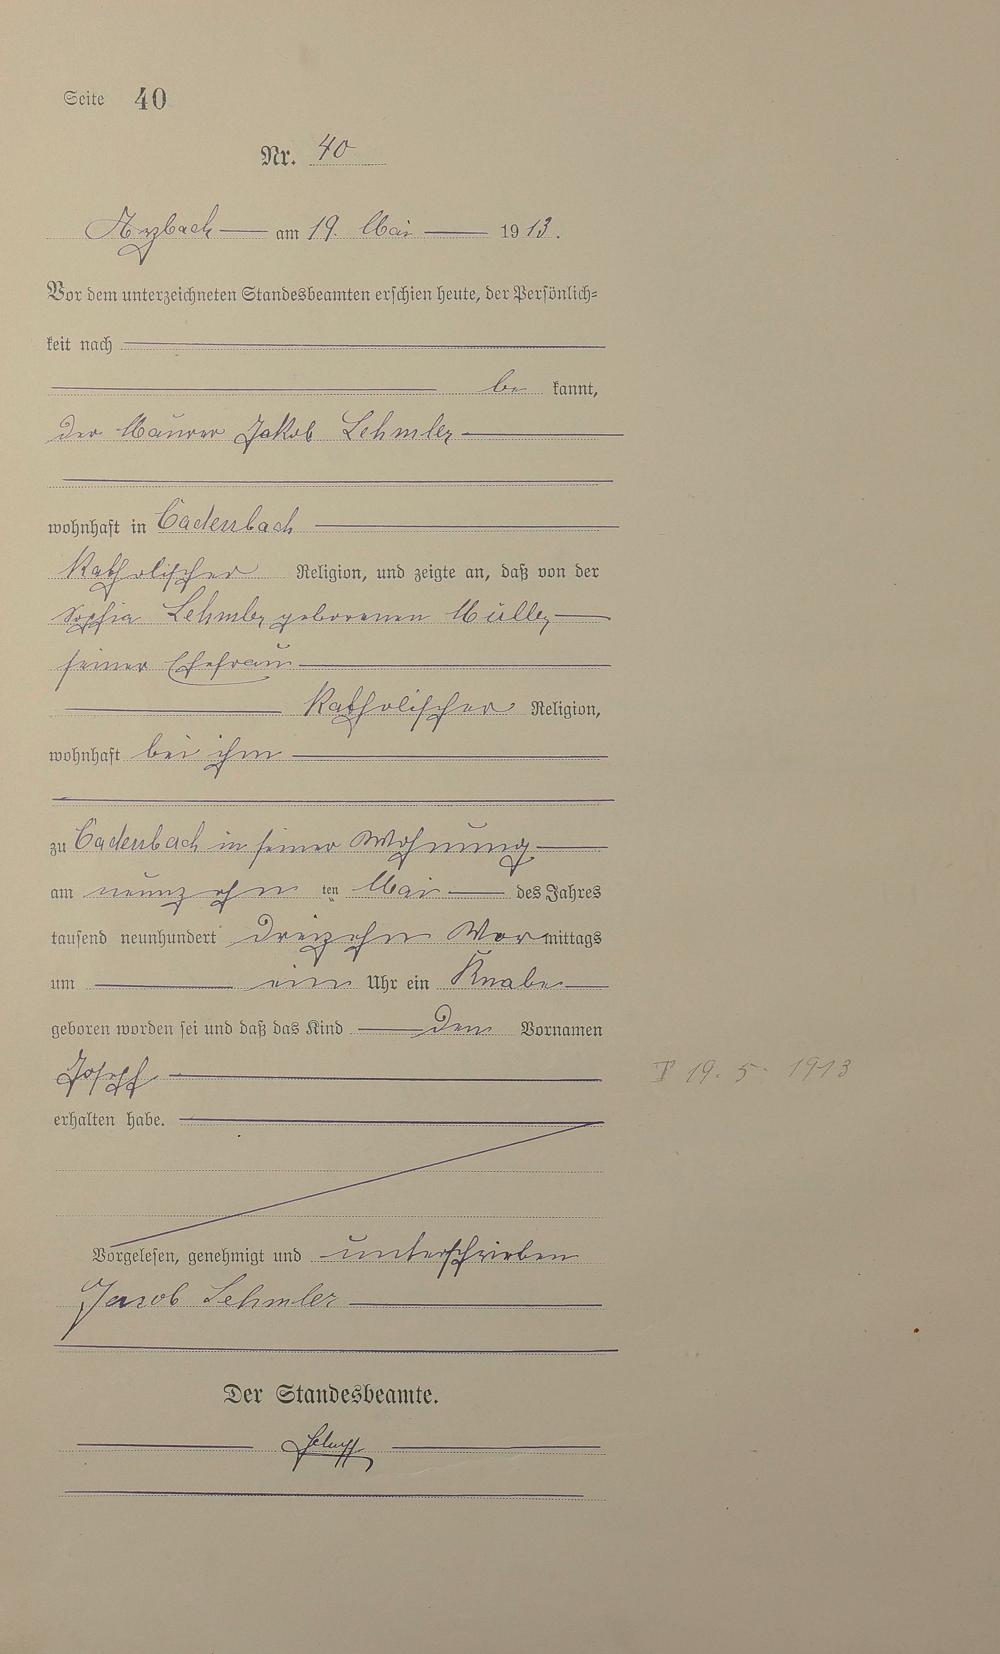 Seite 40
Nr. 40
Arzbach am 19. Mai 1913.
Vor dem unterzeichneten Standesbeamten erschien heute, der Persönlich=
keit nach
be kannt,
der Maurer Jakob Lehmler
wohnhaft in Cadenbach
katholischer Religion, und zeigte an, daß von der
Sophia Lehmler geborenen Müller
seiner Ehefrau
katholischer Religion,
wohnhaft bei ihm
zu Cadenbach in seiner Wohnung
am neunzehn ten Mai des Jahres
tausend neunhundert dreizehn Vormittags
um ein Uhr ein Knabe
geboren worden sei und daß das Kind den Vornamen
Joseph
† 19. 5. 1913
erhalten habe.
Vorgelesen, genehmigt und unterschrieben
Jacob Lehmler
Der Standesbeamte.